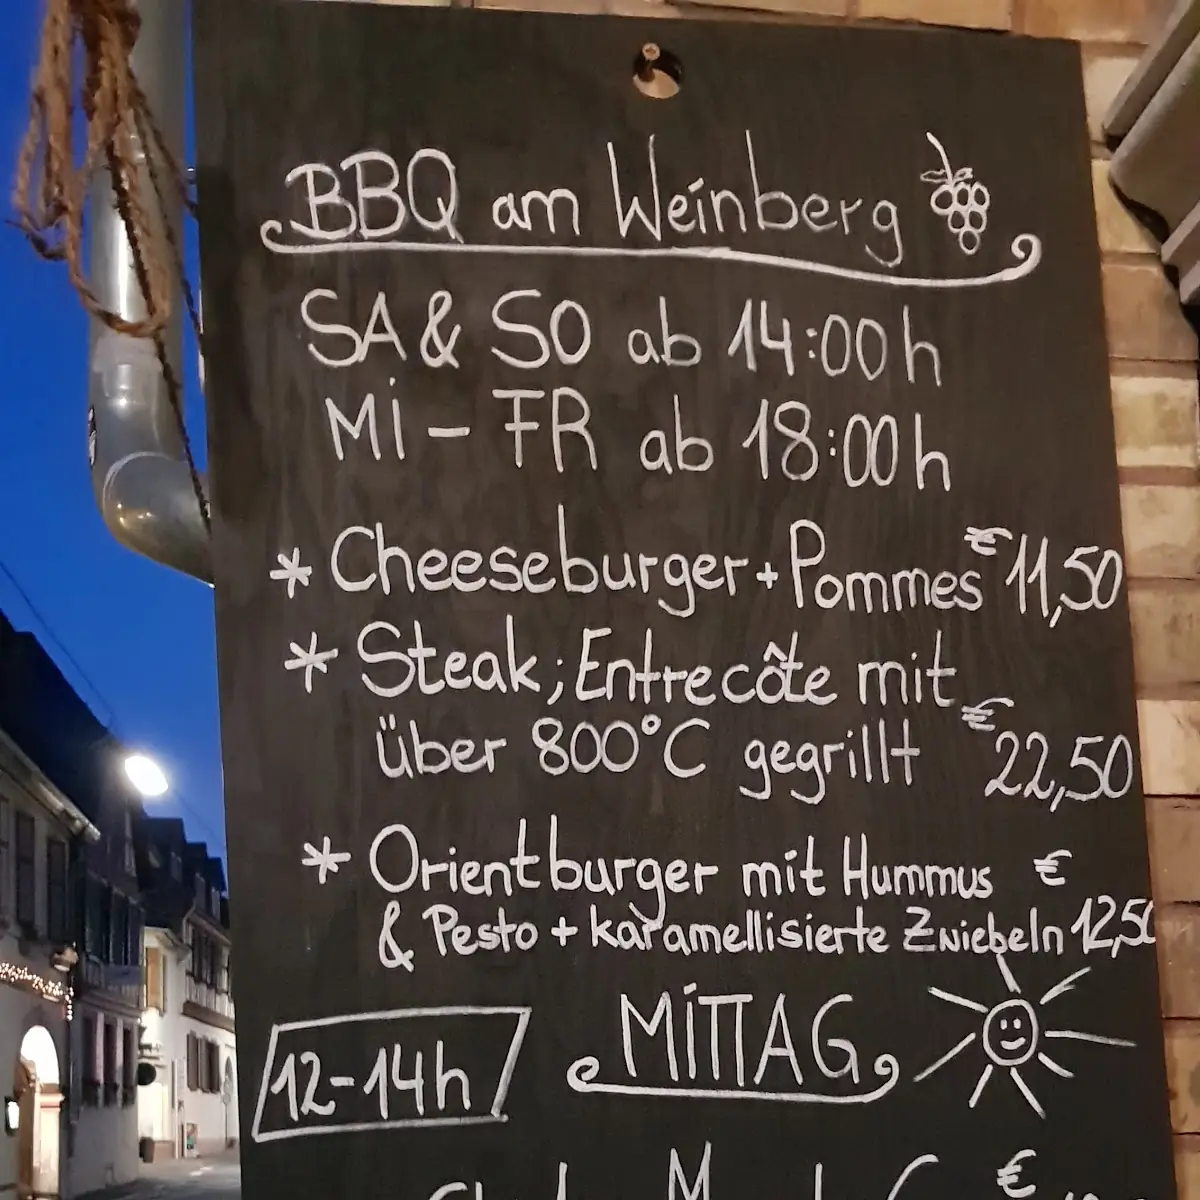 BBQ am Weinberg
SA & SO ab 14:00h
Mi - FR ab 18:00h
* Cheeseburger + Pommes € 11,50
* Steak; Entrecôte mit
über 800°C gegrillt € 22,50
* Orientburger mit Hummus €
& Pesto + karamellisierte Zwiebeln 12,50
12-14h MiTTAG
€